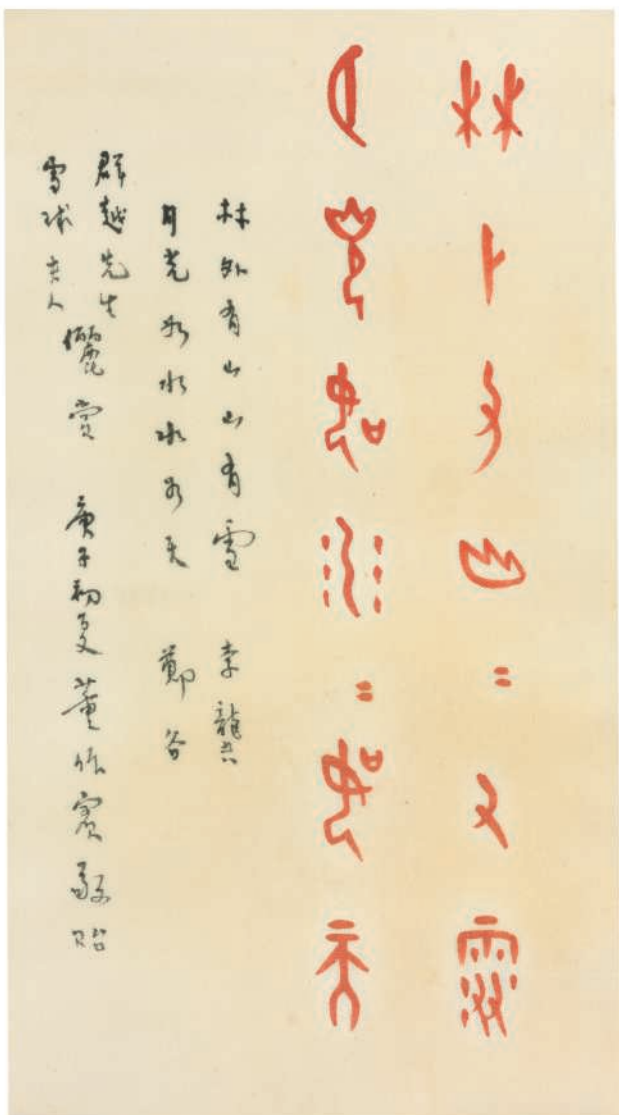 林外有山=有雪
月光如水=如天
林外有山山有雪 李龏
月光如水水如天 鄭谷
群越先生
雪球夫人 儷賞 庚子初夏董作賓敬貽